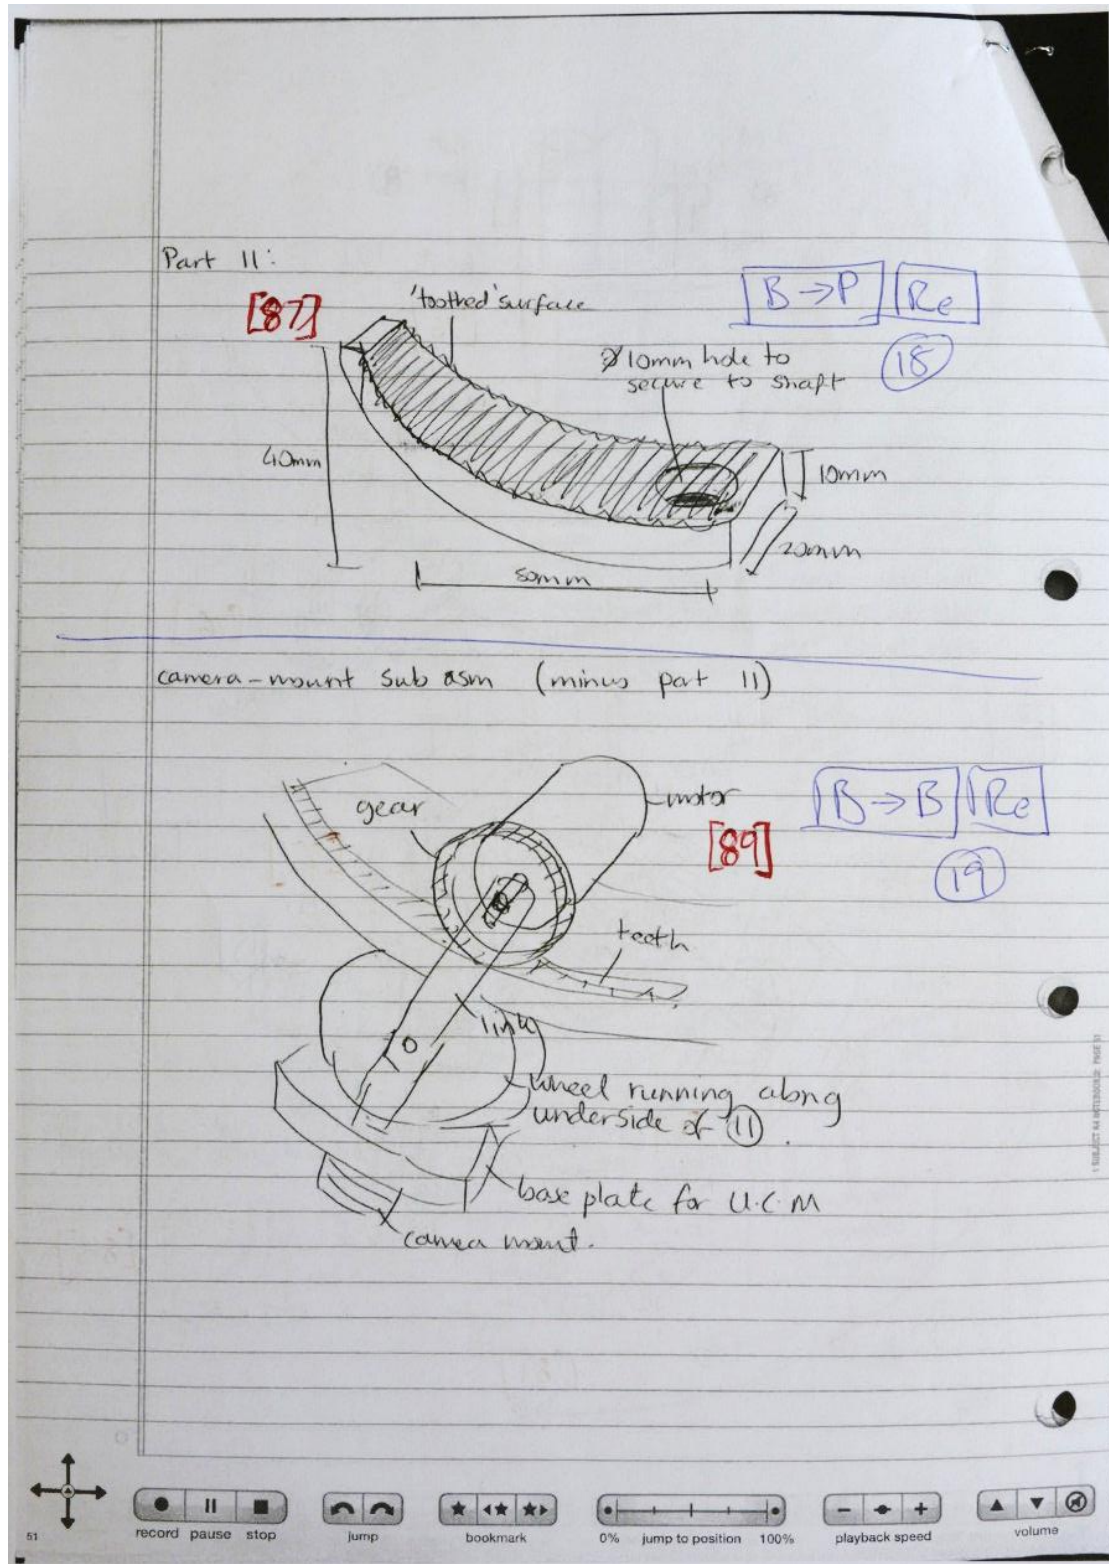 Part 11:
[87]
'toothed' surface
B → P
Re
18
Ø10mm hole to
secure to shaft
40mm
10mm
20mm
50mm
camera-mount sub asm (minus part 11)
gear
motor
[89]
B → B
Re
19
teeth
link
wheel running along
underside of 11.
base plate for U.C.M
camea mount.
1 SUBJECT A4 NOTEBOOK2: PAGE 51
51
record pause stop
jump
bookmark
0% jump to position 100%
playback speed
volume